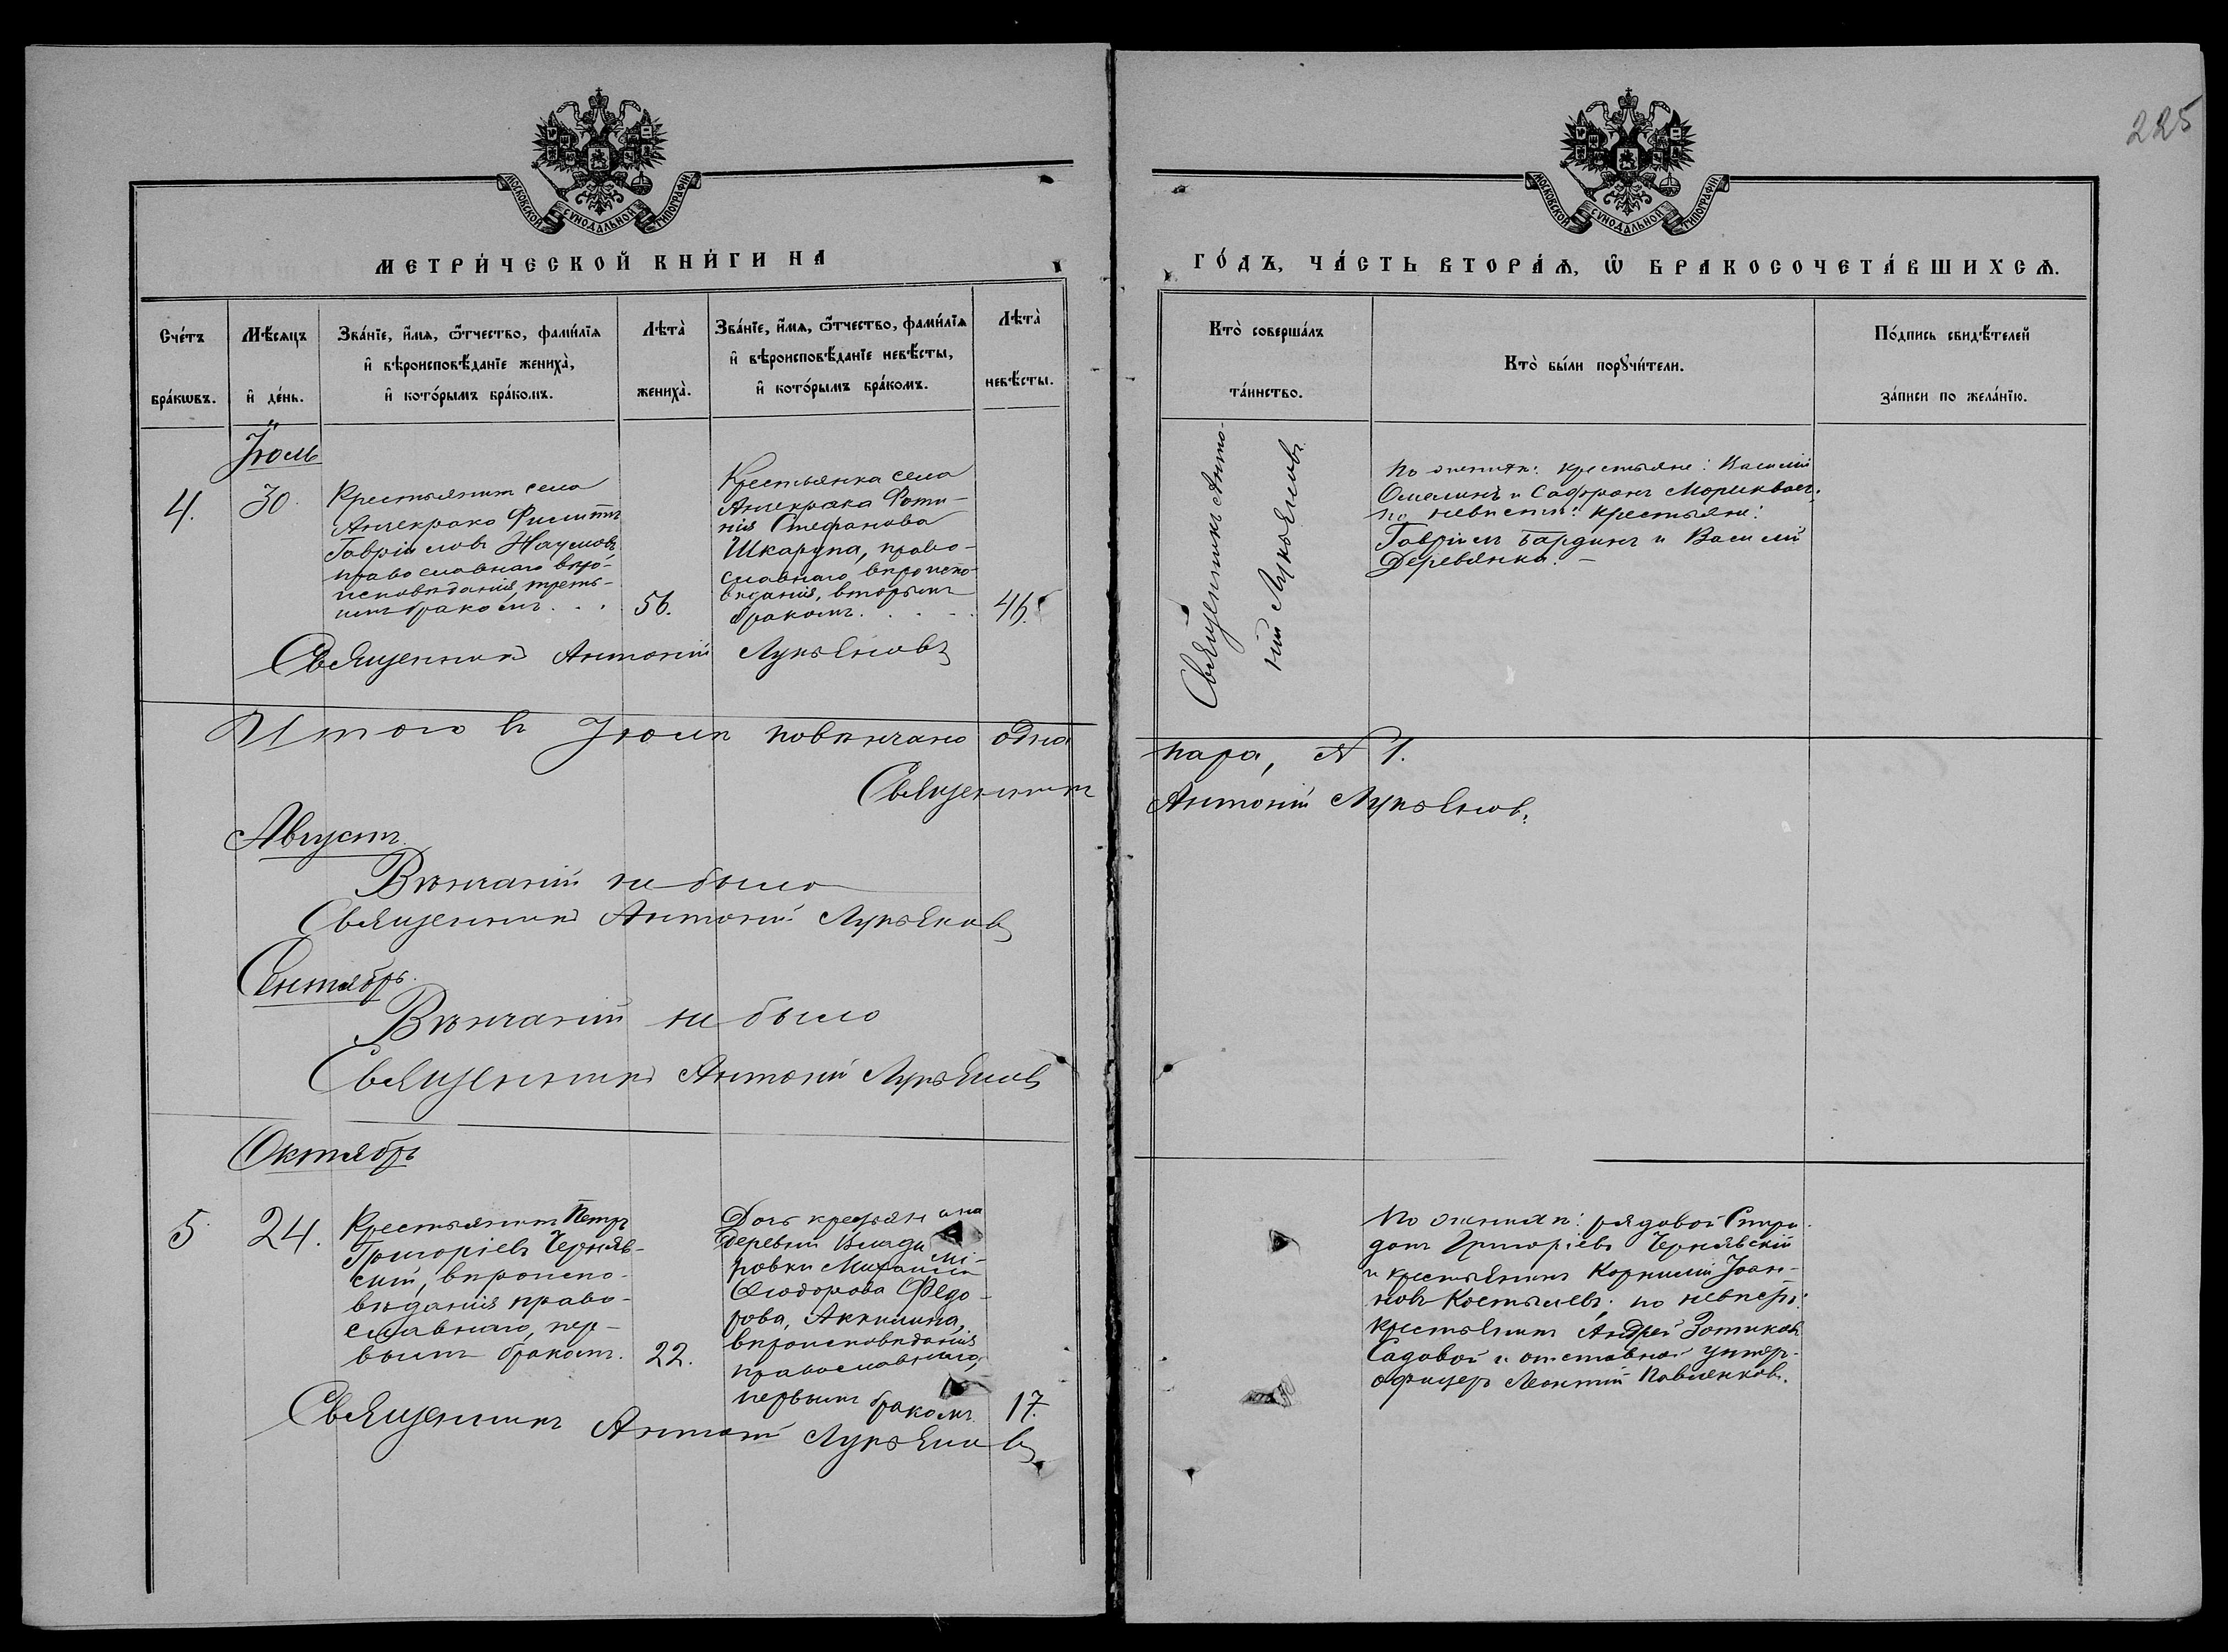 225
МОСКОВСКОЙ СѴНОДАЛЬНОЙ ТИПОГРАФІИ
МЕТРИ́ЧЕСКОЙ КНИ́ГИ НА
Сче́тъ бра́кѡвъ.
Мѣ́сяцъ и҆ де́нь.
Зва́нїе, и҆́мѧ, ѻ҆́тчество, фами́лїѧ
и҆ вѣроисповѣ́данїе жениха̀,
и҆ кото́рымъ бра́комъ.
Лѣта̀ жениха̀.
Зва́нїе, и҆́мѧ, ѻ҆́тчество, фами́лїѧ
и҆ вѣроисповѣ́данїе невѣ́сты,
и҆ кото́рымъ бра́комъ.
Лѣта̀ невѣ́сты.
Іюль
4.
30.
Крестьянинъ села
Анчекрака Филиппъ
Гавріиловъ Наумовъ
православнаго вѣро-
исповѣданія, треть-
имъ бракомъ . . .
56.
Крестьянка села
Анчекрака Фоти-
нія Стефанова
Шкарупа, право-
славнаго вѣроиспо-
вѣданія, вторымъ
бракомъ. . . .
46.
Священникъ Антоній Лукьяновъ
Итого въ Іюлѣ повѣнчано одна
Священникъ
Августъ.
Вѣнчаній не было
Священникъ Антоній Лукьяновъ
Сентябрь.
Вѣнчаній не было
Священникъ Антоній Лукьяновъ
Октябрь
5.
24.
Крестьянинъ Петръ
Григоріевъ Черняв-
скій, вѣроиспо-
вѣданія право-
славнаго, пер-
вымъ бракомъ.
22.
Дочь крестьянина
деревни Влади-
мі-
ровки Михаила
Ѳеодорова Федо-
рова, Акилина,
вѣроисповѣданія
православнаго,
первымъ бракомъ.
17.
Священникъ Антоній Лукьяновъ
МОСКОВСКОЙ СѴНОДАЛЬНОЙ ТИПОГРАФІИ
ГО́ДЪ, ЧА́СТЬ ВТОРА́Ѧ, Ѽ БРАКОСОЧЕТА́ВШИХСѦ.
Кто̀ соверша́лъ
та́инство.
Кто̀ бы́ли порꙋчи́тели.
По́дпись свидѣ́телей
за́писи по жела́нїю.
Священникъ Анто-
ній Лукьяновъ
По женихѣ: крестьяне: Василій
и Сафронъ
по невѣстѣ: крестьяне:
Гавріилъ Бардинъ и Василій
Деревянка. —
пара, № 1.
Антоній Лукьяновъ.
По женихѣ: рядовой Спири-
донъ Григоріевъ Чернявскій
и крестьянинъ Корнилій Іоан-
новъ Костылевъ; по невѣстѣ:
крестьянинъ Андрей Зотиковъ
Садовой и отставной унтер-
офицеръ Леонтій Павленковъ.